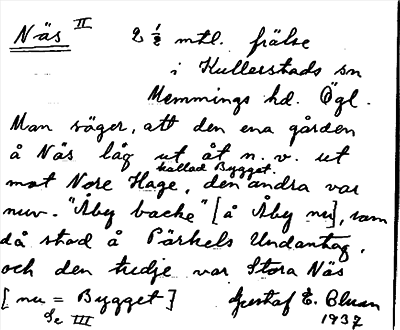 Näs II 2 ½ mtl. frälse
i Kullerstads sn
Memmings hd. Ögl.
Man säger, att den ena gården
å Näs låg ut åt n. v. ut
kallad Bygget.
mot Nore Hage, den andra var
nuv. "Åby backe" [å Åby nu], som
då stod å Pärkels Undantag,
och den tredje var Stora Näs
[nu = Bygget] Gustaf E. Bluan
Se III 1937